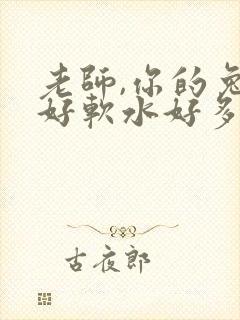 老師,你的兔
好軟水好多
古夜郎